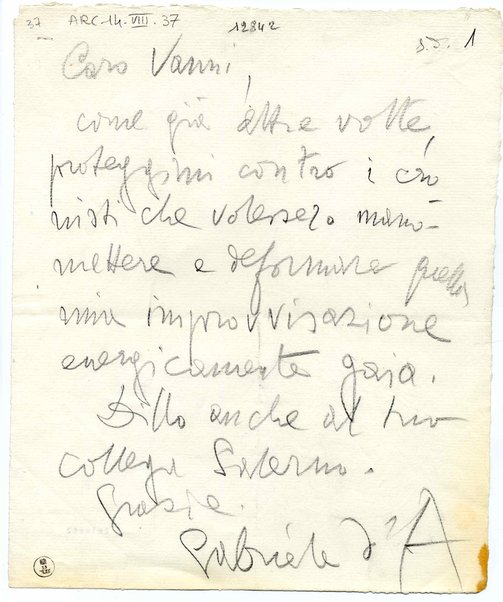 37 ARC. 14. VIII. 37 12842 1
Caro Vanni,
come già altre volte,
proteggimi contro i cro
nisti che volessero mano-
mettere e deformare quella
mia improvvisazione
energicamente gaja.
Dillo anche al tuo
collega Salerno.
Grazie.
Gabriele d'A